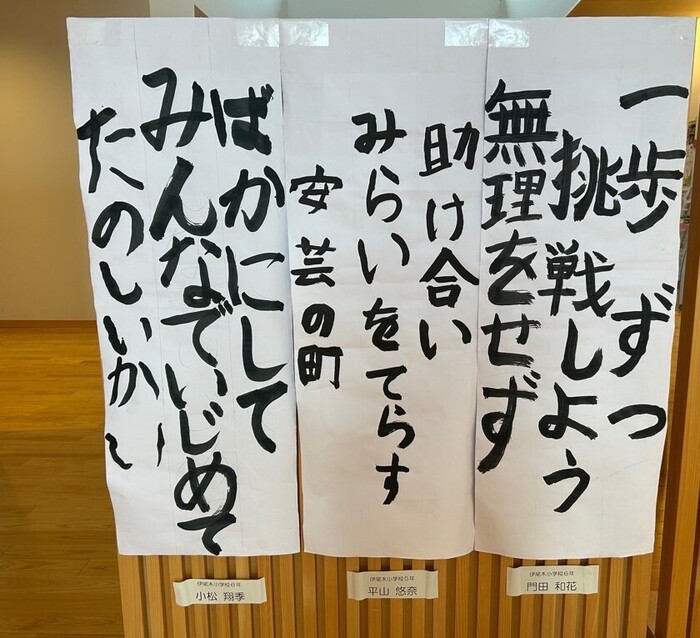 一歩ずつ
挑戦しよう
無理をせず
伊尾木小学校6年
門田 和花
助け合い
みらいをてらす
安芸の町
伊尾木小学校5年
平山 悠奈
ばかにして
みんなでいじめて
たのしいかい
伊尾木小学校6年
小松 翔季